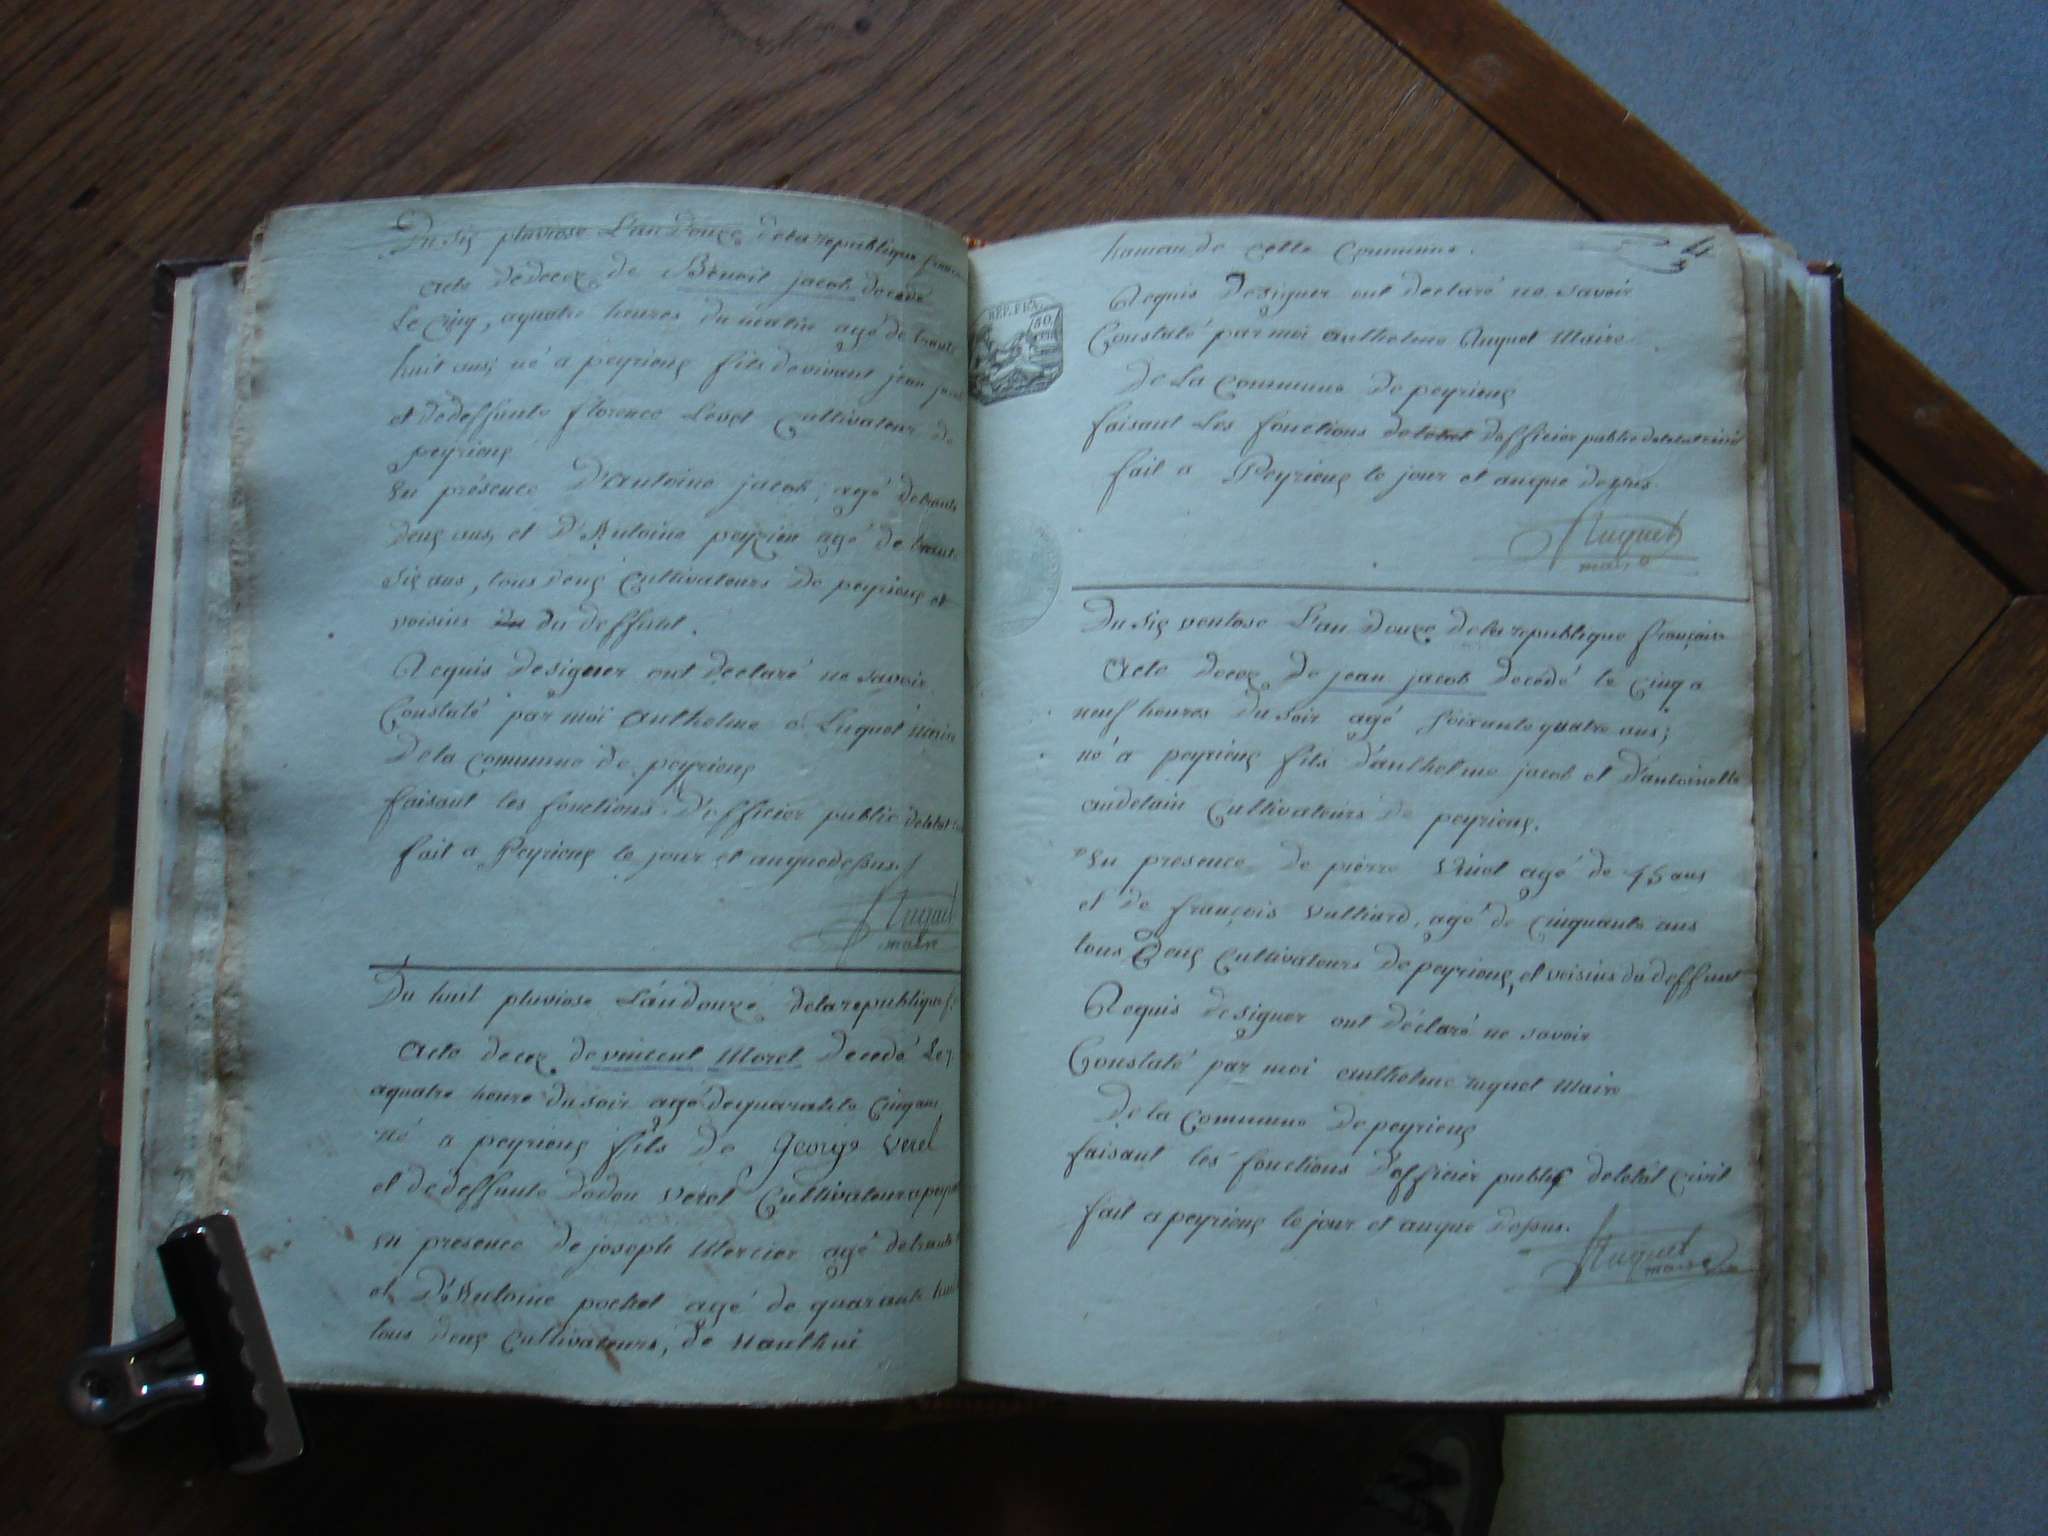 Du six pluviose L'an Douze delarepublique francai
acte de decez de Benoit jacob decedé
le cinq, aquatre heures du matin agé de trente
huit ans; né a peyrieux fils devivant jean jacob
et dedeffunte florence Levet Cultivateur de
peyrieux
En présence D'antoine jacob, agé detrente
Deux ans, et D'Antoine peyzieu agé de trente
six ans, tous deux Cultivateurs De peyrieux et
voisins du du deffunt.
Requis designer ont declaré ne savoir
Constaté par moi anthelme Luquet maire
Dela Commune de peyrieux
faisant les fonctions D'officier public deletat
fait a Peyrieux le jour et anquedessus
Luquet
maire
Du huit pluviose L'an douze delarepublique f.
Acte decez de vincent Morel Decedé Le 7
aquatre heure dusoir agé dequarante Cinq ans
né a peyrieux fils de George verel
et dedeffunte dodon verel Cultivateur apeyr
En presence de joseph Mercier agé detrente
et D'Antoine pochet agé de quarante huit
tous deux Cultivateurs, de Nanthui
hameau de cette Commune.
4
Requis designer ont declaré ne savoir
REP. FRA.
50
Constaté par moi anthelme Luquet Maire
De La Commune De peyrieux
faisant Les fonctions deletat d'officier public deletat civil
fait a Peyrieux le jour et anque dessus.
Luquet
maire
Du Six ventose L'an Douze delarepublique françoise
Acte decez De jean jacob decédé le Cinq a
neuf heures Du soir agé soixante quatre ans;
né a peyrieux fils d'anthelme jacob et D'antoinette
andelain Cultivateurs De peyrieux.
En presence de pierre Vinet agé de 45 ans
et De françois Vulliard, agé de cinquante ans
tous Deux Cultivateurs De peyrieux, et voisins du deffunt
Requis designer ont déclaré ne savoir
Constaté par moi anthelme Luquet Maire
De la Commune De peyrieux
faisant les fonctions D'officier public deletat civil
fait a peyrieux le jour et anque Dessus.
Luquet
maire